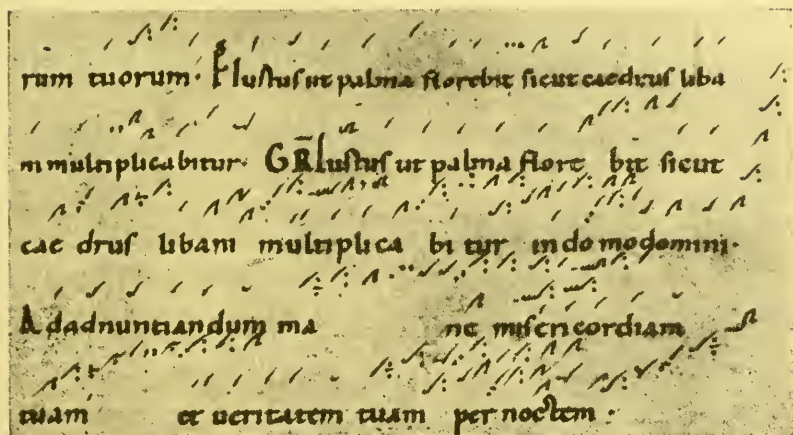 rum tuorum. Iustus ut palma florebit sicut caedrus liba
ni multiplicabitur. GR Iustus ut palma flore bit sicut
cae drus libani multiplica bi tur in do mo domini.
A dadnuntiandum ma ne misericordiam
tuam et ueritatem tuam per noctem.